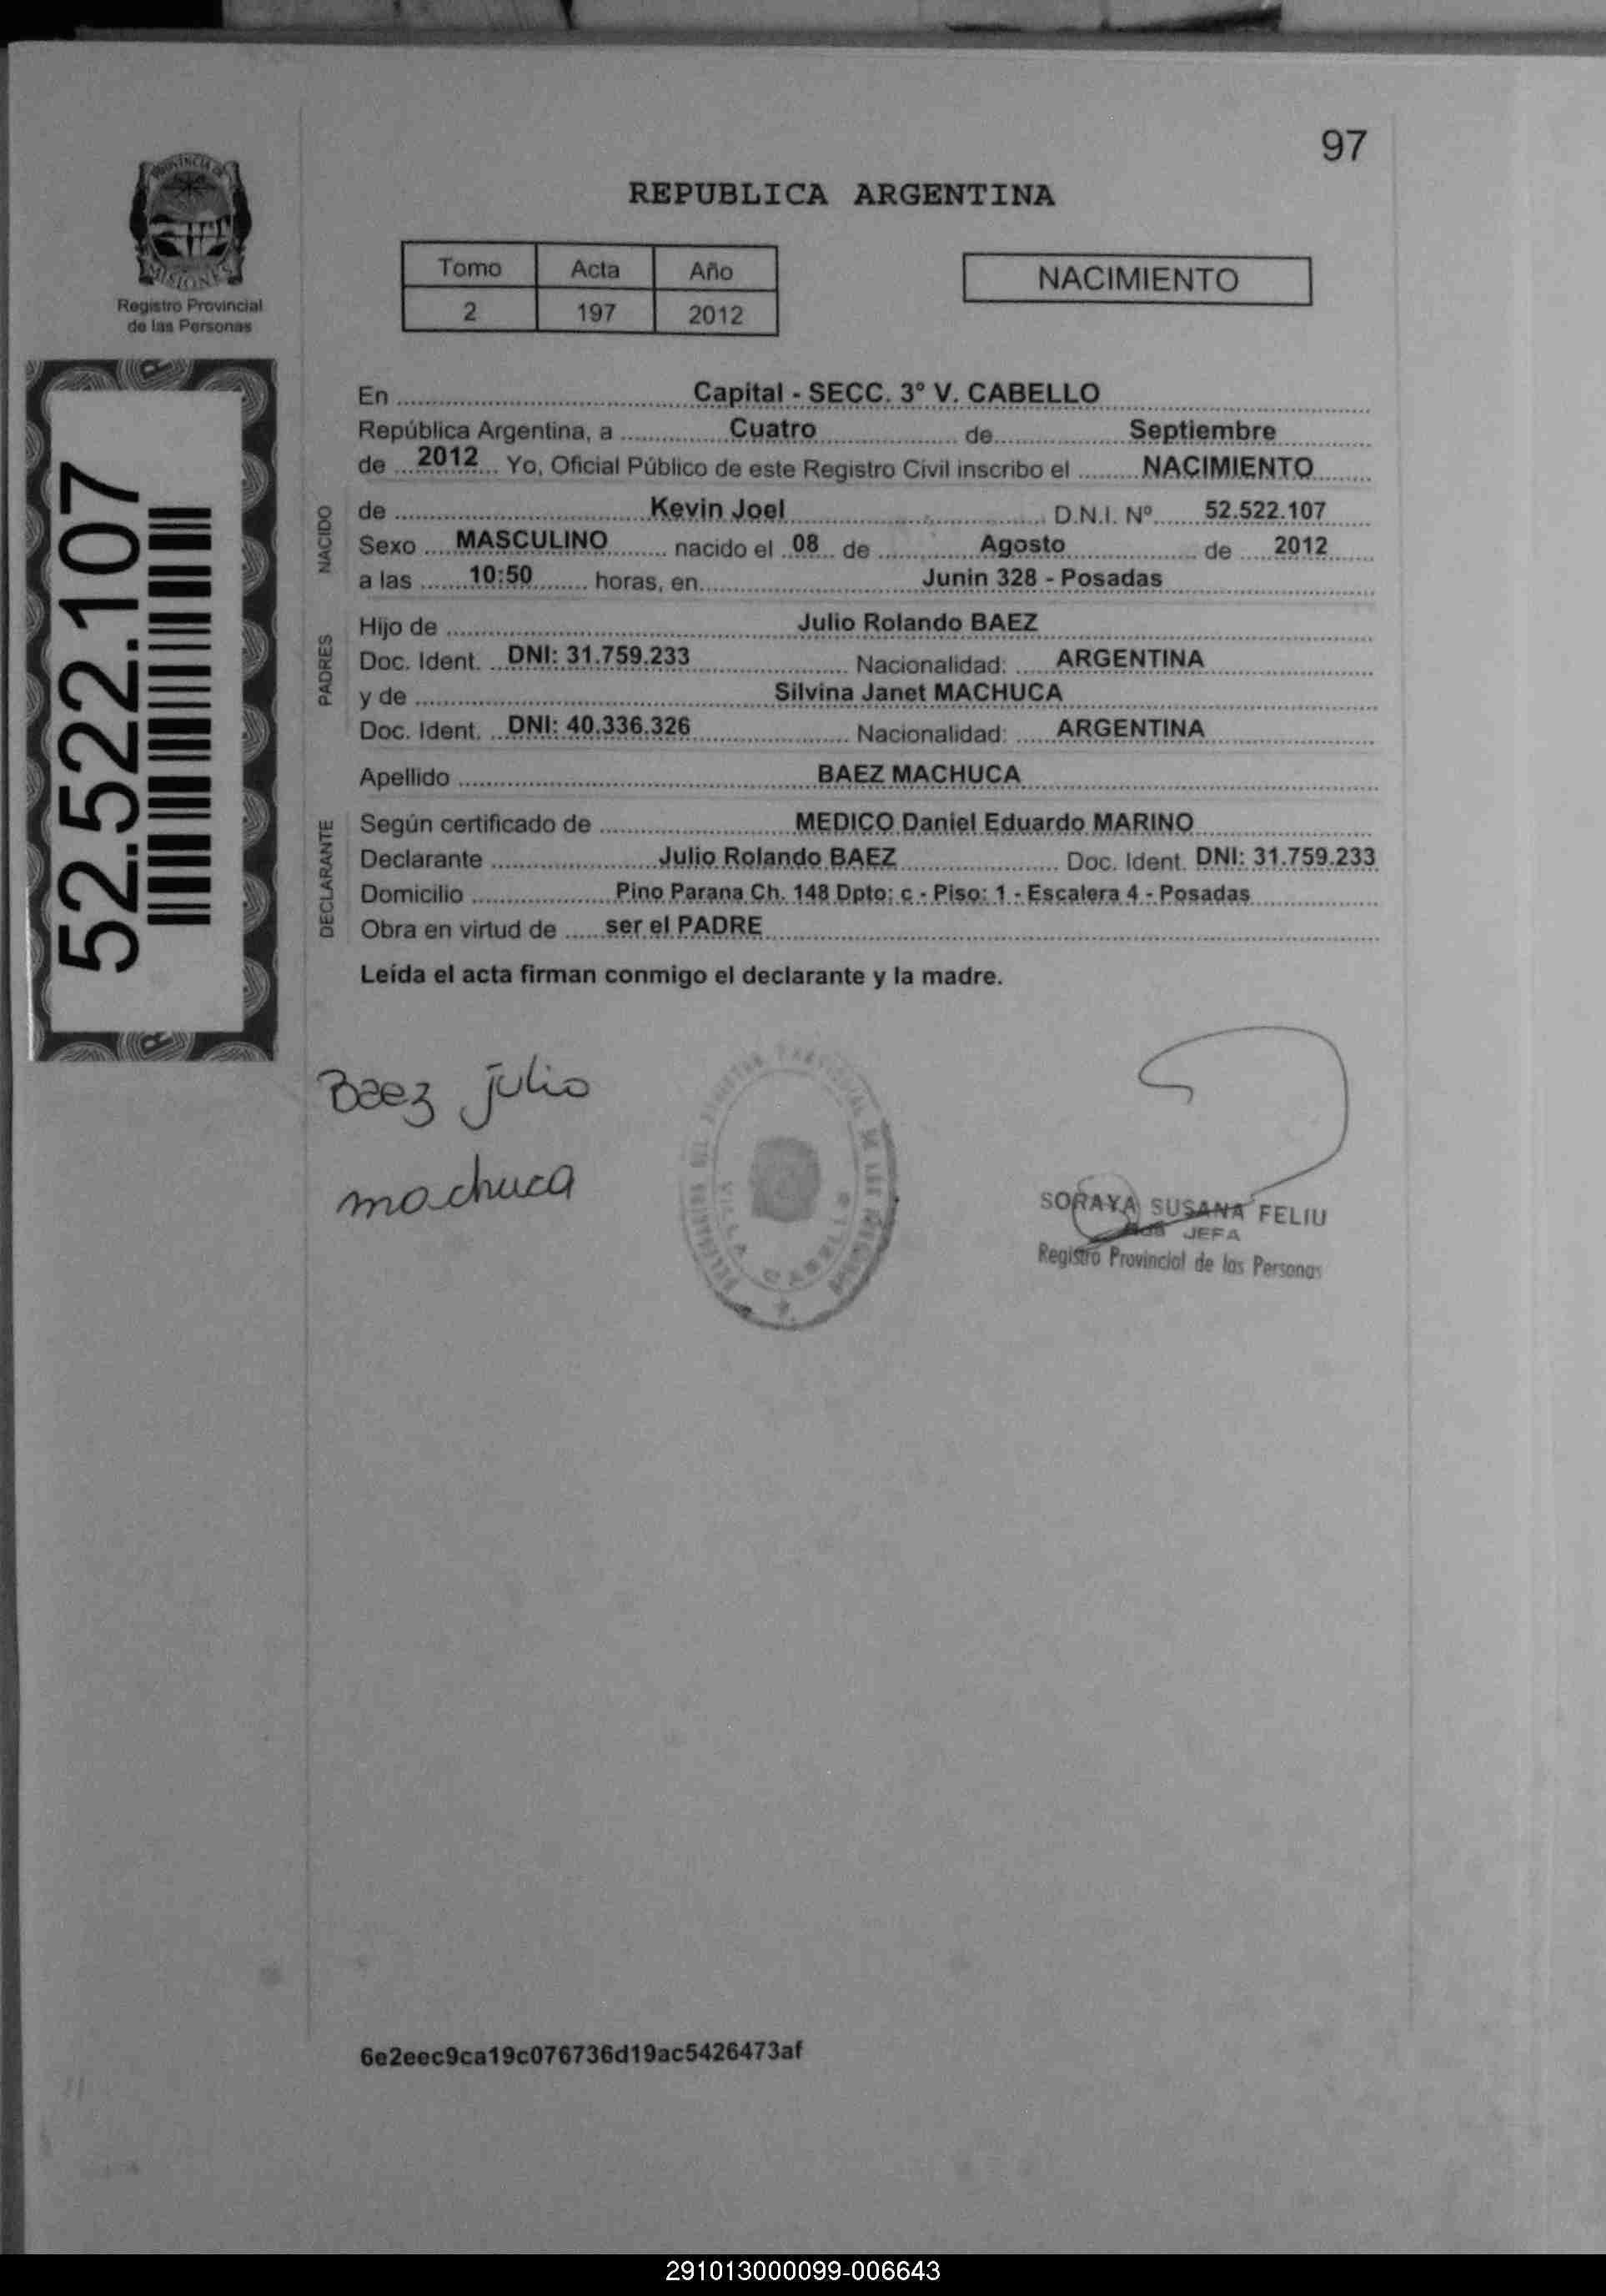 97
PROVINCIA DE
MISIONES
Registro Provincial
de las Personas
REPUBLICA ARGENTINA
Tomo Acta Año
2 197 2012
NACIMIENTO
52.522.107
En Capital - SECC. 3º V. CABELLO
República Argentina, a Cuatro de Septiembre
de 2012 Yo, Oficial Público de este Registro Civil inscribo el NACIMIENTO
NACIDO
de Kevin Joel D.N.I. Nº 52.522.107
Sexo MASCULINO nacido el 08 de Agosto de 2012
a las 10:50 horas, en Junin 328 - Posadas
PADRES
Hijo de Julio Rolando BAEZ
Doc. Ident. DNI: 31.759.233 Nacionalidad: ARGENTINA
y de Silvina Janet MACHUCA
Doc. Ident. DNI: 40.336.326 Nacionalidad: ARGENTINA
Apellido BAEZ MACHUCA
DECLARANTE
Según certificado de MEDICO Daniel Eduardo MARINO
Declarante Julio Rolando BAEZ Doc. Ident. DNI: 31.759.233
Domicilio Pino Parana Ch. 148 Dpto: c - Piso: 1 - Escalera 4 - Posadas
Obra en virtud de ser el PADRE
Leída el acta firman conmigo el declarante y la madre.
Baez julio
machuca
VILLA CABELLO
SORAYA SUSANA FELIU
JEFA
Registro Provincial de las Personas
6e2eec9ca19c076736d19ac5426473af
291013000099-006643